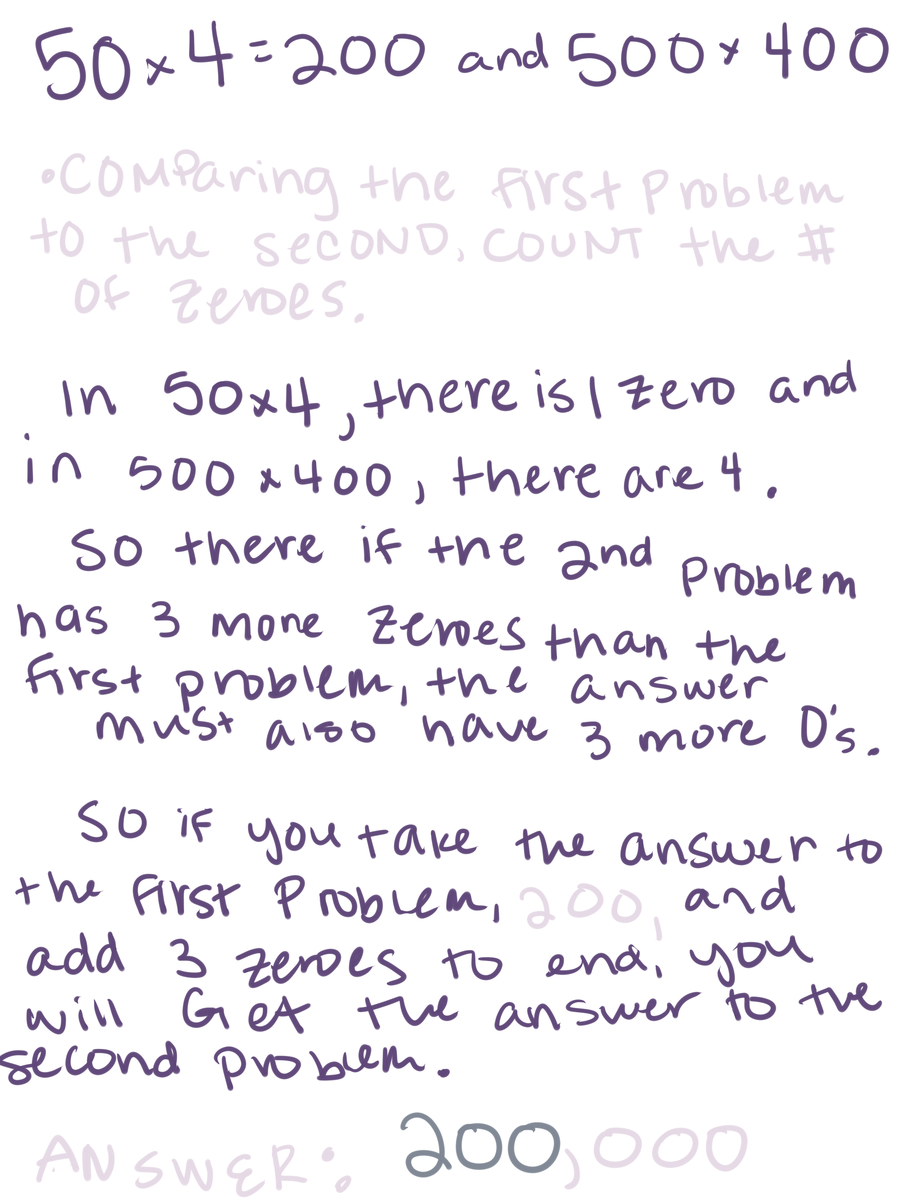 50 x 4 = 200 and 500 x 400
• Comparing the first problem
to the second, count the #
of zeroes.
In 50x4, there is 1 zero and
in 500 x 400, there are 4.
So there if the 2nd problem
has 3 more zeroes than the
first problem, the answer
must also have 3 more 0's.
So if you take the answer to
the first problem, 200, and
add 3 zeroes to end, you
will get the answer to the
second problem.
Answer: 200,000